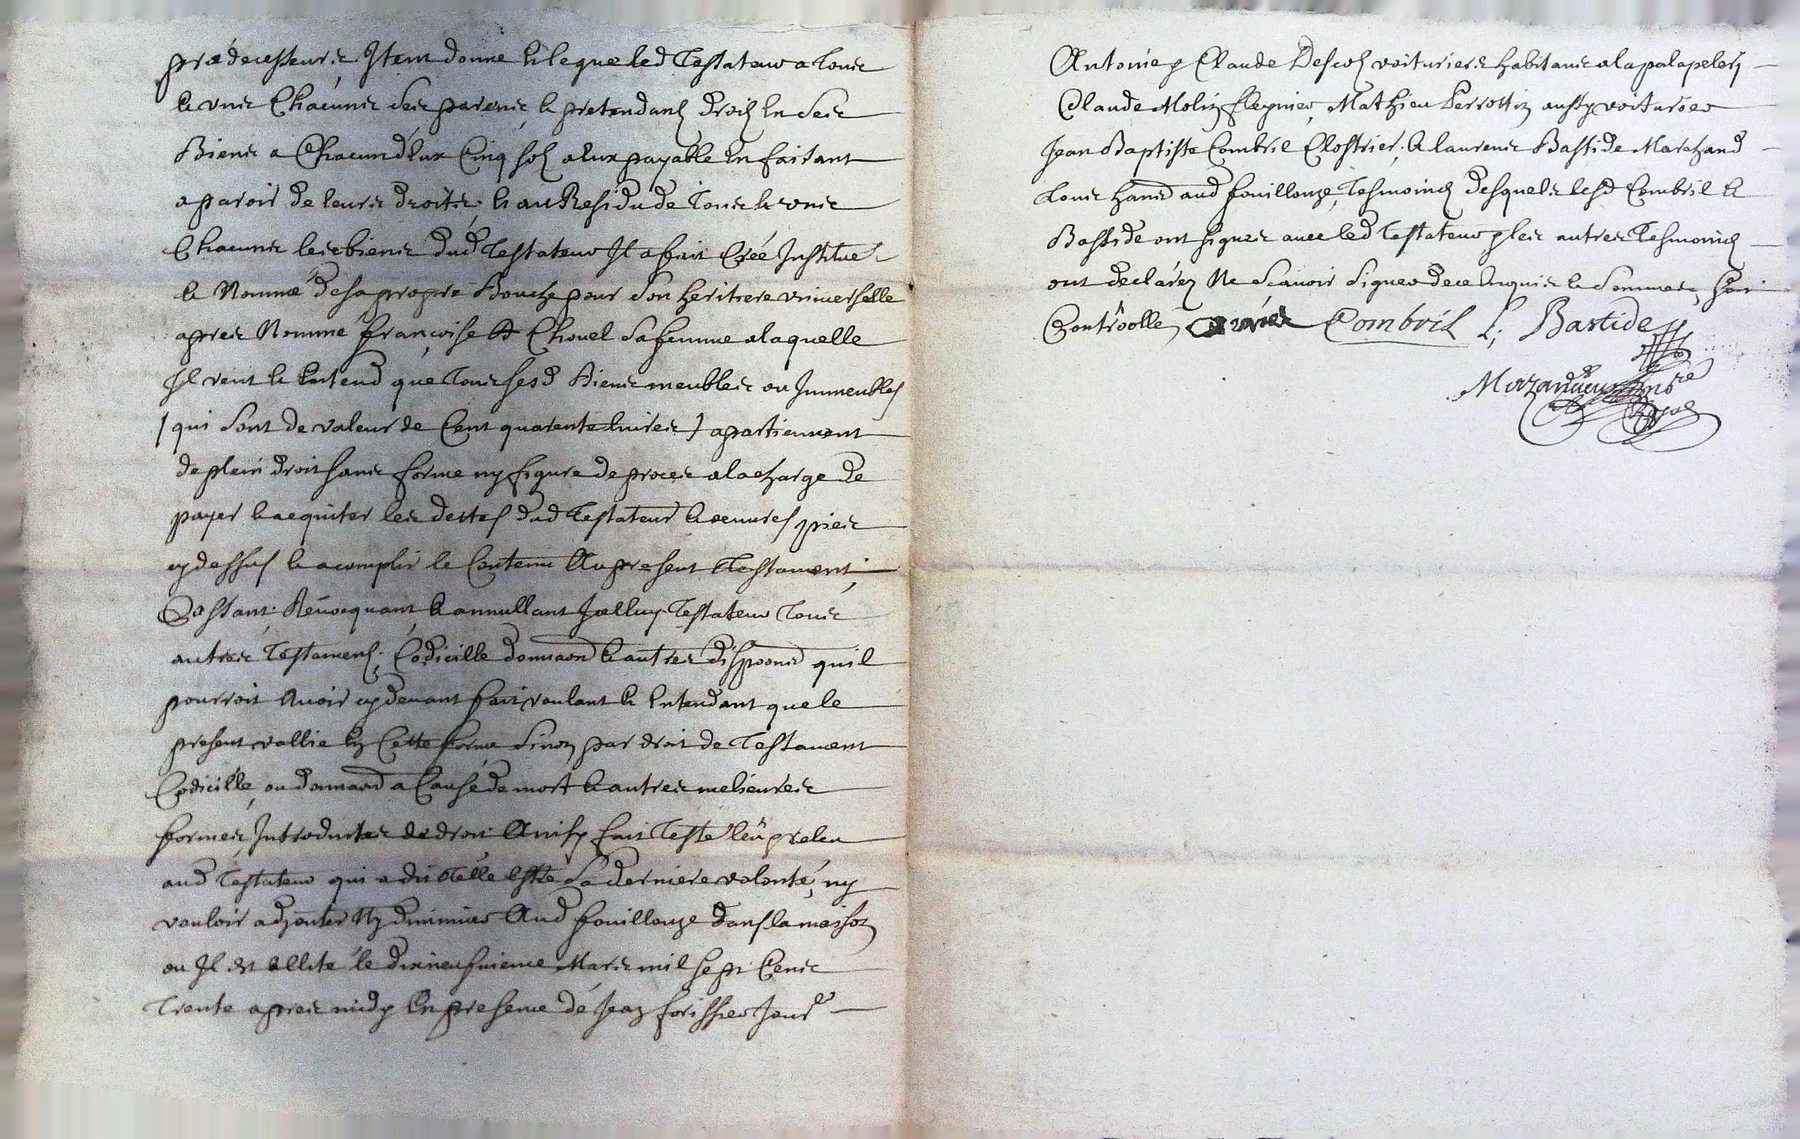 prædecesseurs Item donne & legue led Testateur a tous
& uns Chacuns ses parens & pretendans droit en ses
Biens a Chacun d'eux Cinq sols a eux payable en faisant
aparoir de leurs droits, & au Residu de Tous & uns
Chacuns les biens dud Testateur Il a fait Créé Institué
& Nommé de sa propre Bouche pour son heritiere universelle
apres Nommé françoise Chovel sa femme a laquelle
Il veut & Entend que Tous sesd Biens meubles ou Immeubles
( qui sont de valeur de Cent quarente livres ) apartiennent
de plein droit sans forme ny figure de proces a la charge de
payer & acquiter les dettes dud Testateur & œuvres pies
cy dessus & acomplir le Contenu Au present Testament,
Cassant, Revocquant & annullant Icelluy Testateur Tous
autres Testamens, Codicille donnaõn & autres dispoõns quil
pourroit Avoir cy devant fait voulant & Entendant que le
present vallie en Cette forme Sinon par droit de Testament
Codicille, ou donnaõn a Cause de mort & autres melieures
formes Introduites de droit Ainsy fait Testé leu & releu
aud Testateur qui a dit telle estre Sa derniere volonté, ny
vouloir adjouter Ny diminuer Aud fouillouze dans la maison
ou Il est allité le dixneufvieme Mars mil sept Cens
Trente apres midy En presence de Jean forissier Jour^r
Antoine & Claude Descos voituriers habitans a la palapelery
Claude Molin, Mathieu Perrottin aussy voiturier
Jean Baptiste Combril Clostrier, & laurens Bastide Marchand
Tous aud fouillouze, Tesmoins desquels lesd Combril &
Bastide ont signés avec led Testateur & les autres Tesmoins
ont declarés Ne Scavoir Signer de ce Enquis & Sommés, soit
Controollé, Combril L; Bastide
Mazandieu No^re
Royal